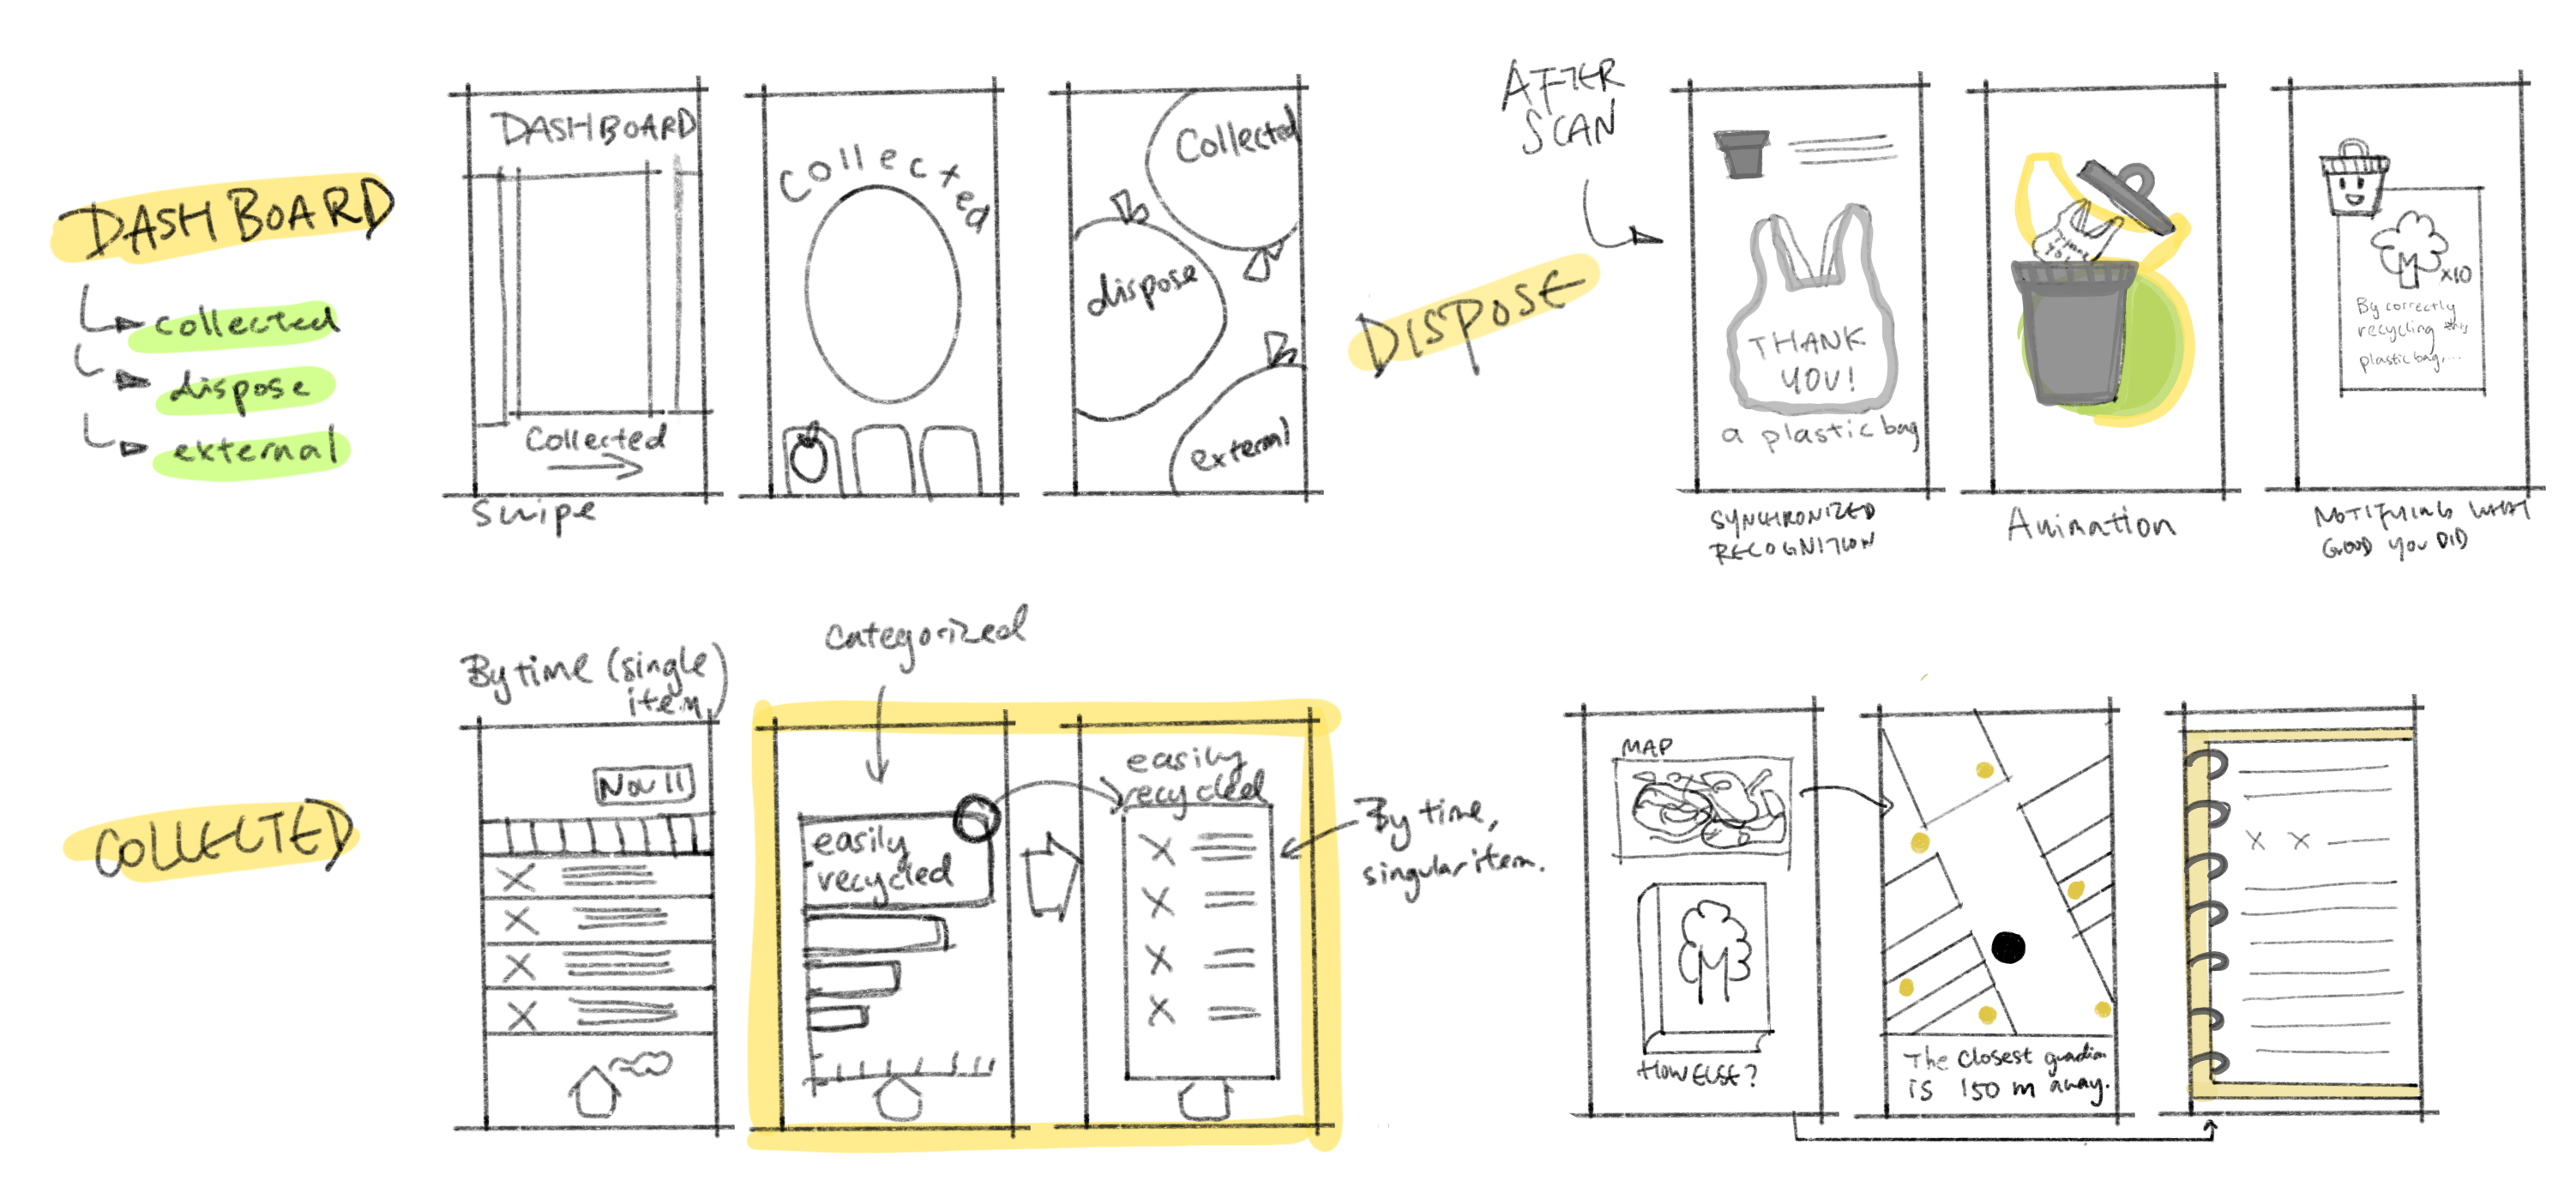 DASHBOARD
collected
dispose
external
DASHBOARD
Collected
Swipe
Collected
Collected
dispose
external
DISPOSE
AFTER
SCAN
THANK
YOU!
a plastic bag
SYNCHRONIZED
RECOGNITION
THANK
YOU
Animation
x10
By correctly
recycling this
plastic bag,...
NOTIFYING WHAT
GOOD YOU DID
COLLECTED
By time (single
item)
Nov 11
categorized
easily
recycled
easily
recycled
By time,
singular item.
MAP
HOW ELSE?
The closest guardian
is 150 m away.